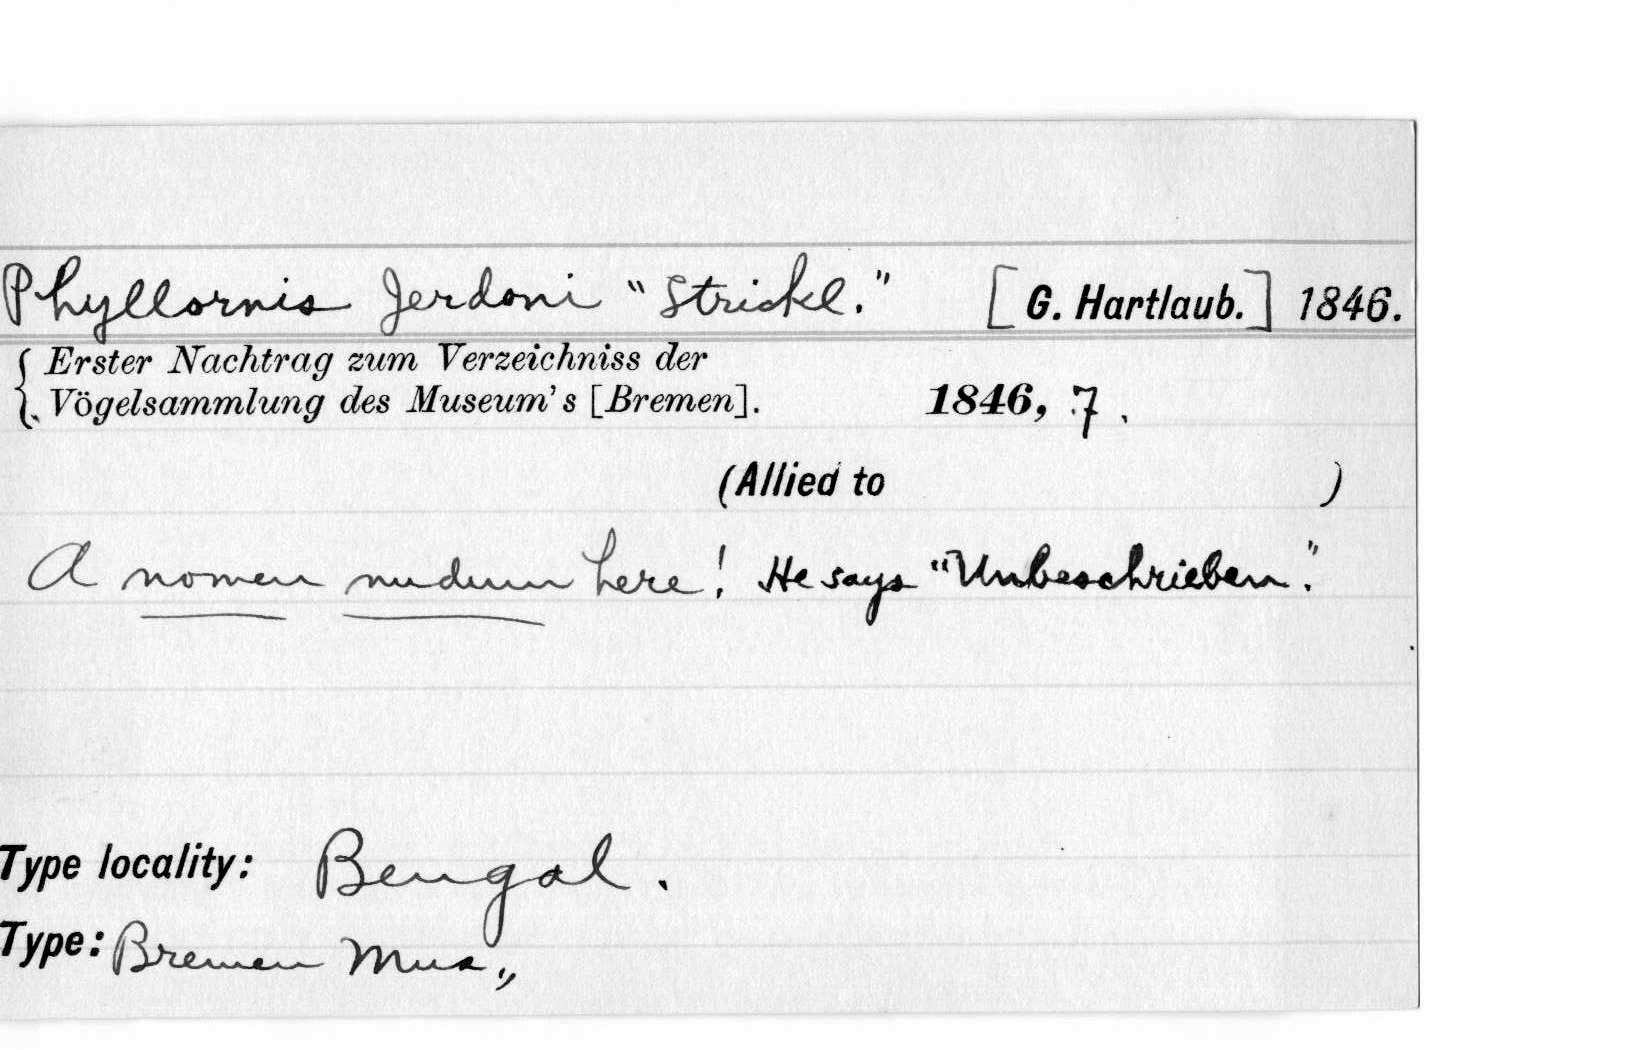 Phyllornis Jerdoni "Strickl." [G. Hartlaub.] 1846.
Erster Nachtrag zum Verzeichniss der
Vögelsammlung des Museum's [Bremen]. 1846, 7.
(Allied to )
A nomen nudum here! He says "Unbeschrieben."
Type locality: Bengal.
Type: Bremen Mus.,